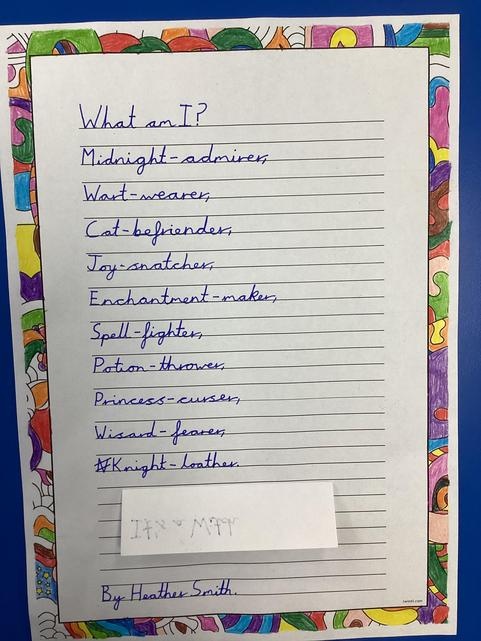 What am I?
Midnight-admirer,
Wart-wearer,
Cat-befriender,
Joy-snatcher,
Enchantment-maker,
Spell-fighter,
Potion-thrower,
Princess-curser,
Wisard-fearer,
Knight-loather.
It's a
By Heather Smith.
twinkl.com